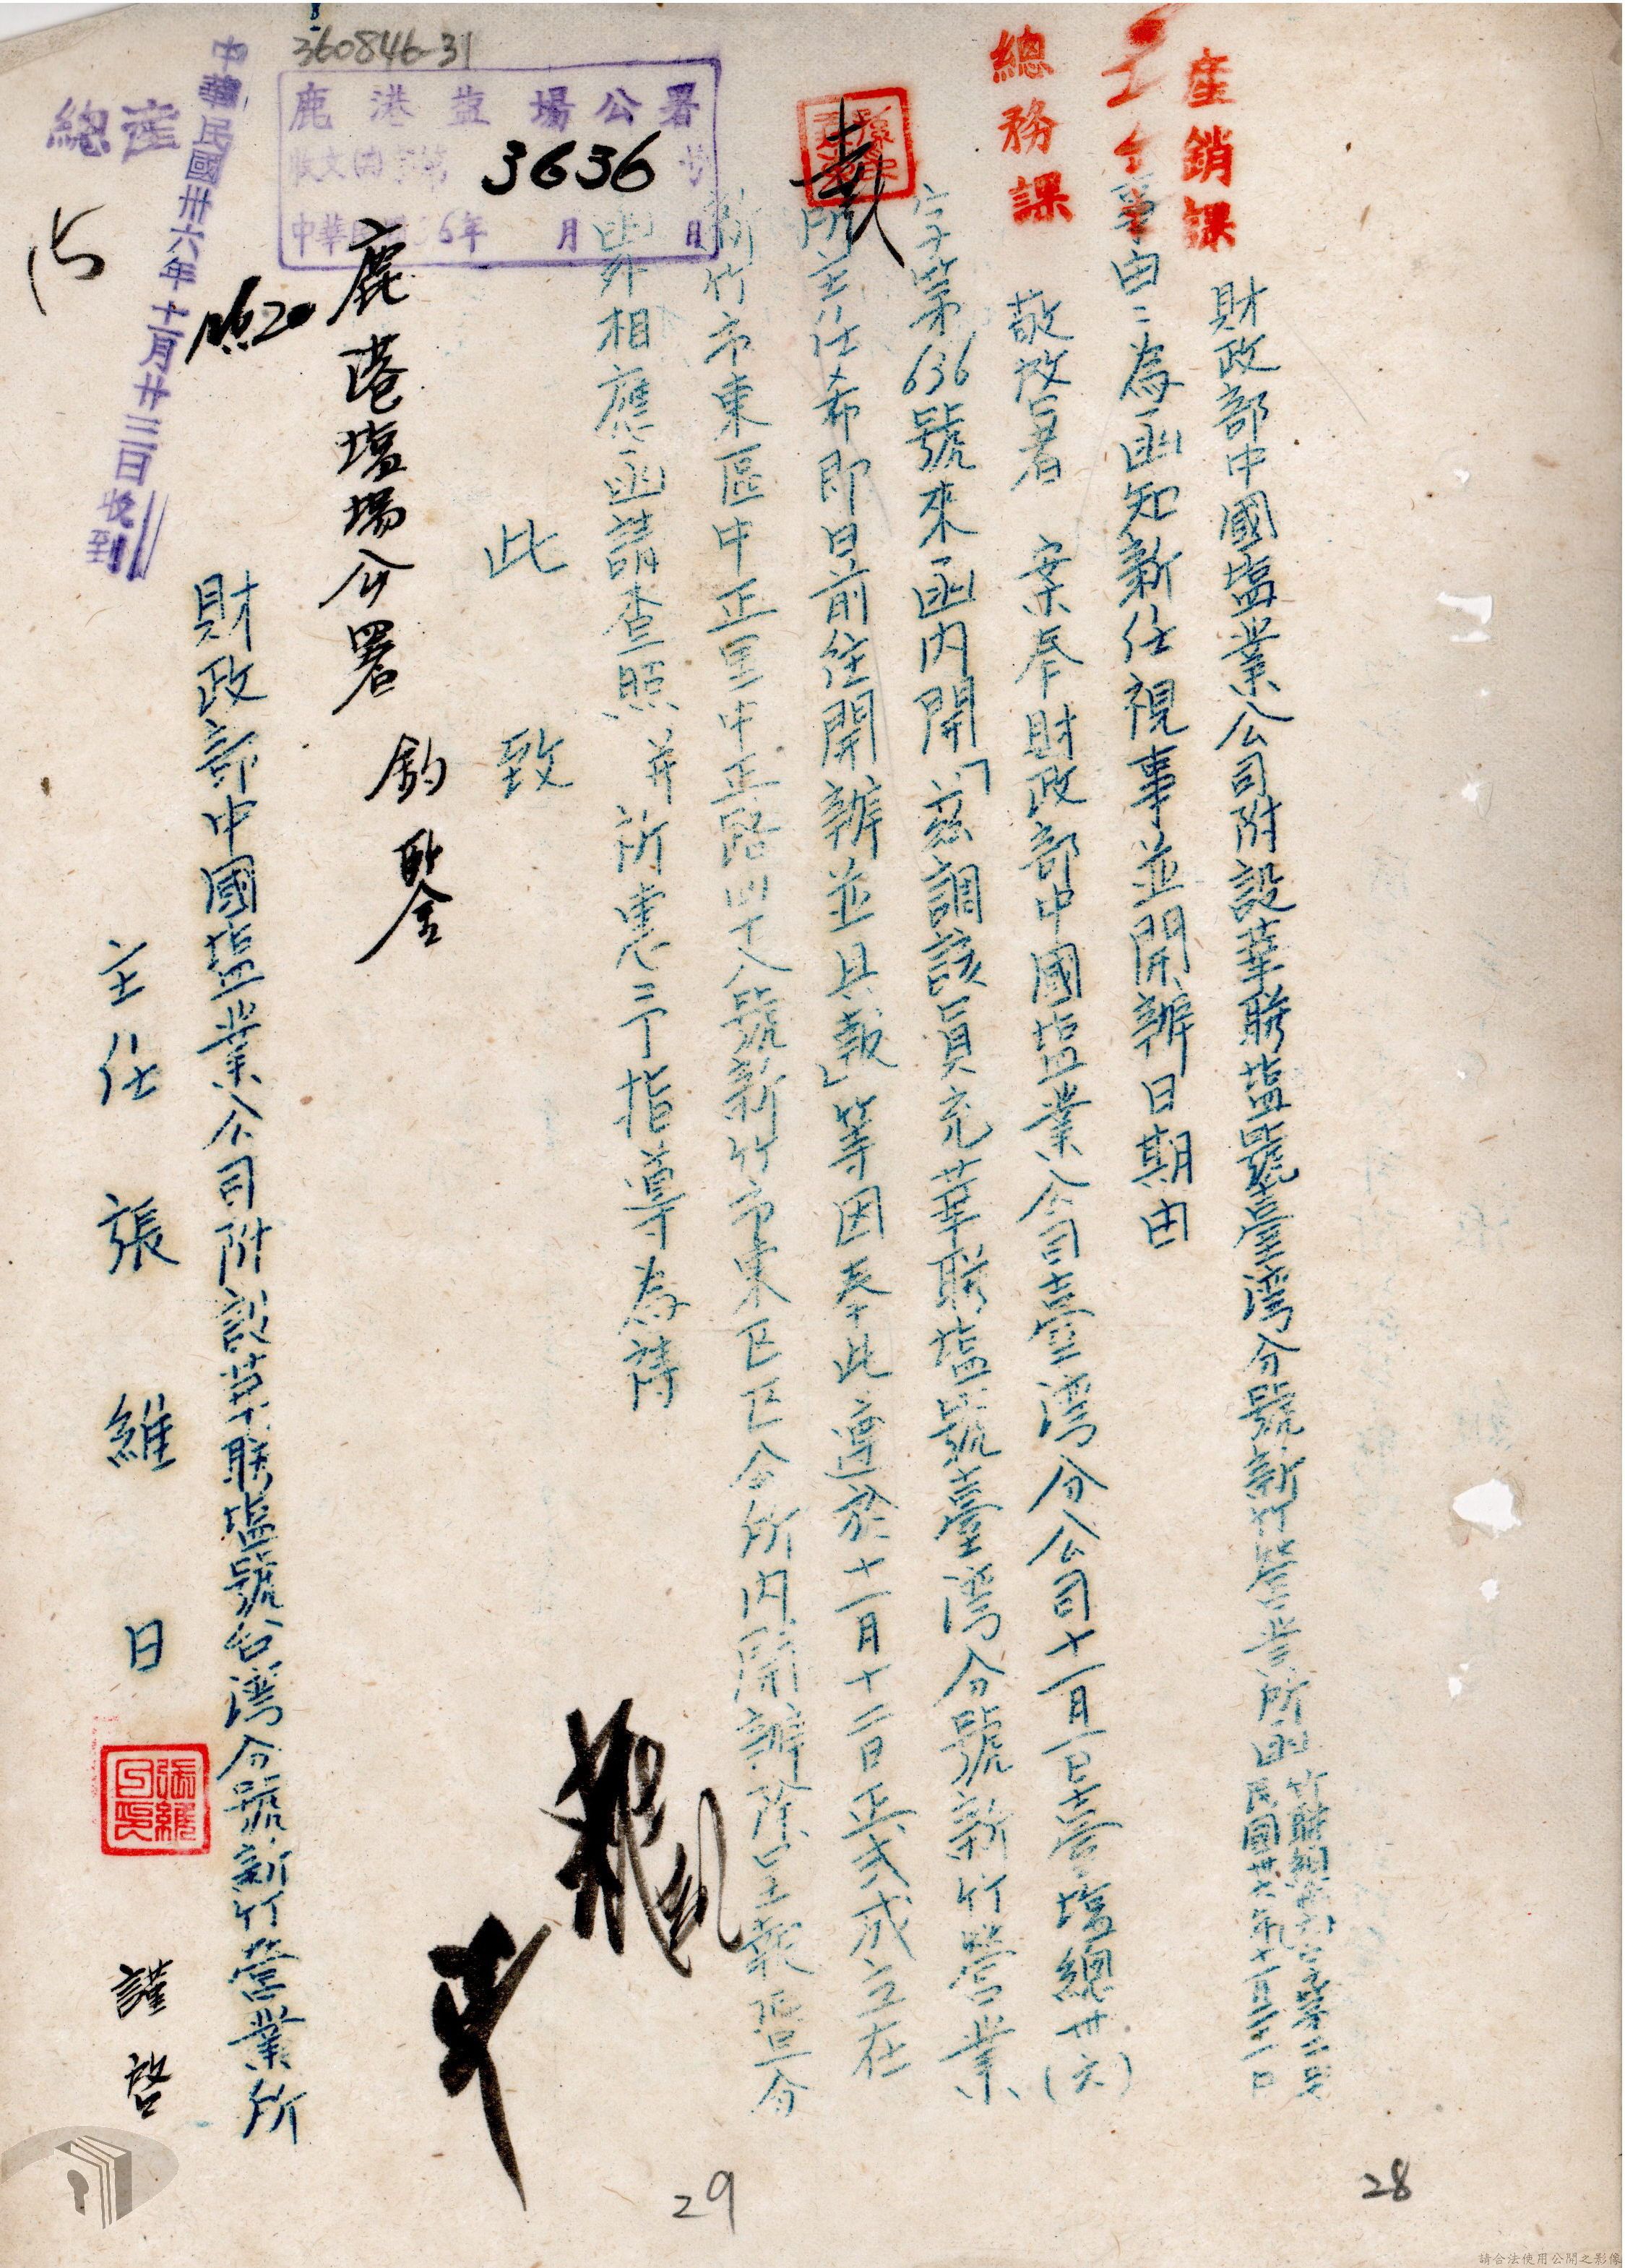 360846-31
鹿港盐場公署
收文 字第3636號
中華民國36年 月 日
中華民國卅六年十一月廿三日收到
總產
產銷課
總務課
財政部中國塩業公司附設華聯塩號臺灣分號新竹營業所函
民國卅六年十一月二十一日
事由:為函知新任視事並開辦日期由
敬啟者 案奉財政部中國塩業公司臺灣分公司十一月一日臺塩總卅(六)
字第636號來函內開「茲調該員充華聯塩號臺灣分號新竹營業
所主任希即日前往開辦並具報」等因奉此遵於十一月十二日正式成立在
新竹市東區中正里中正路四十八號新竹市東区区公所内開辦除呈報 分
函外相應函請查照并祈惠予指導為禱
此 致
鹿港塩場公署 鈞鑒
財政部中國塩業公司附設華聯塩號台灣分號新竹營業所
主任 張維日 謹啓
張維日印
29
28
請合法使用公開之影像